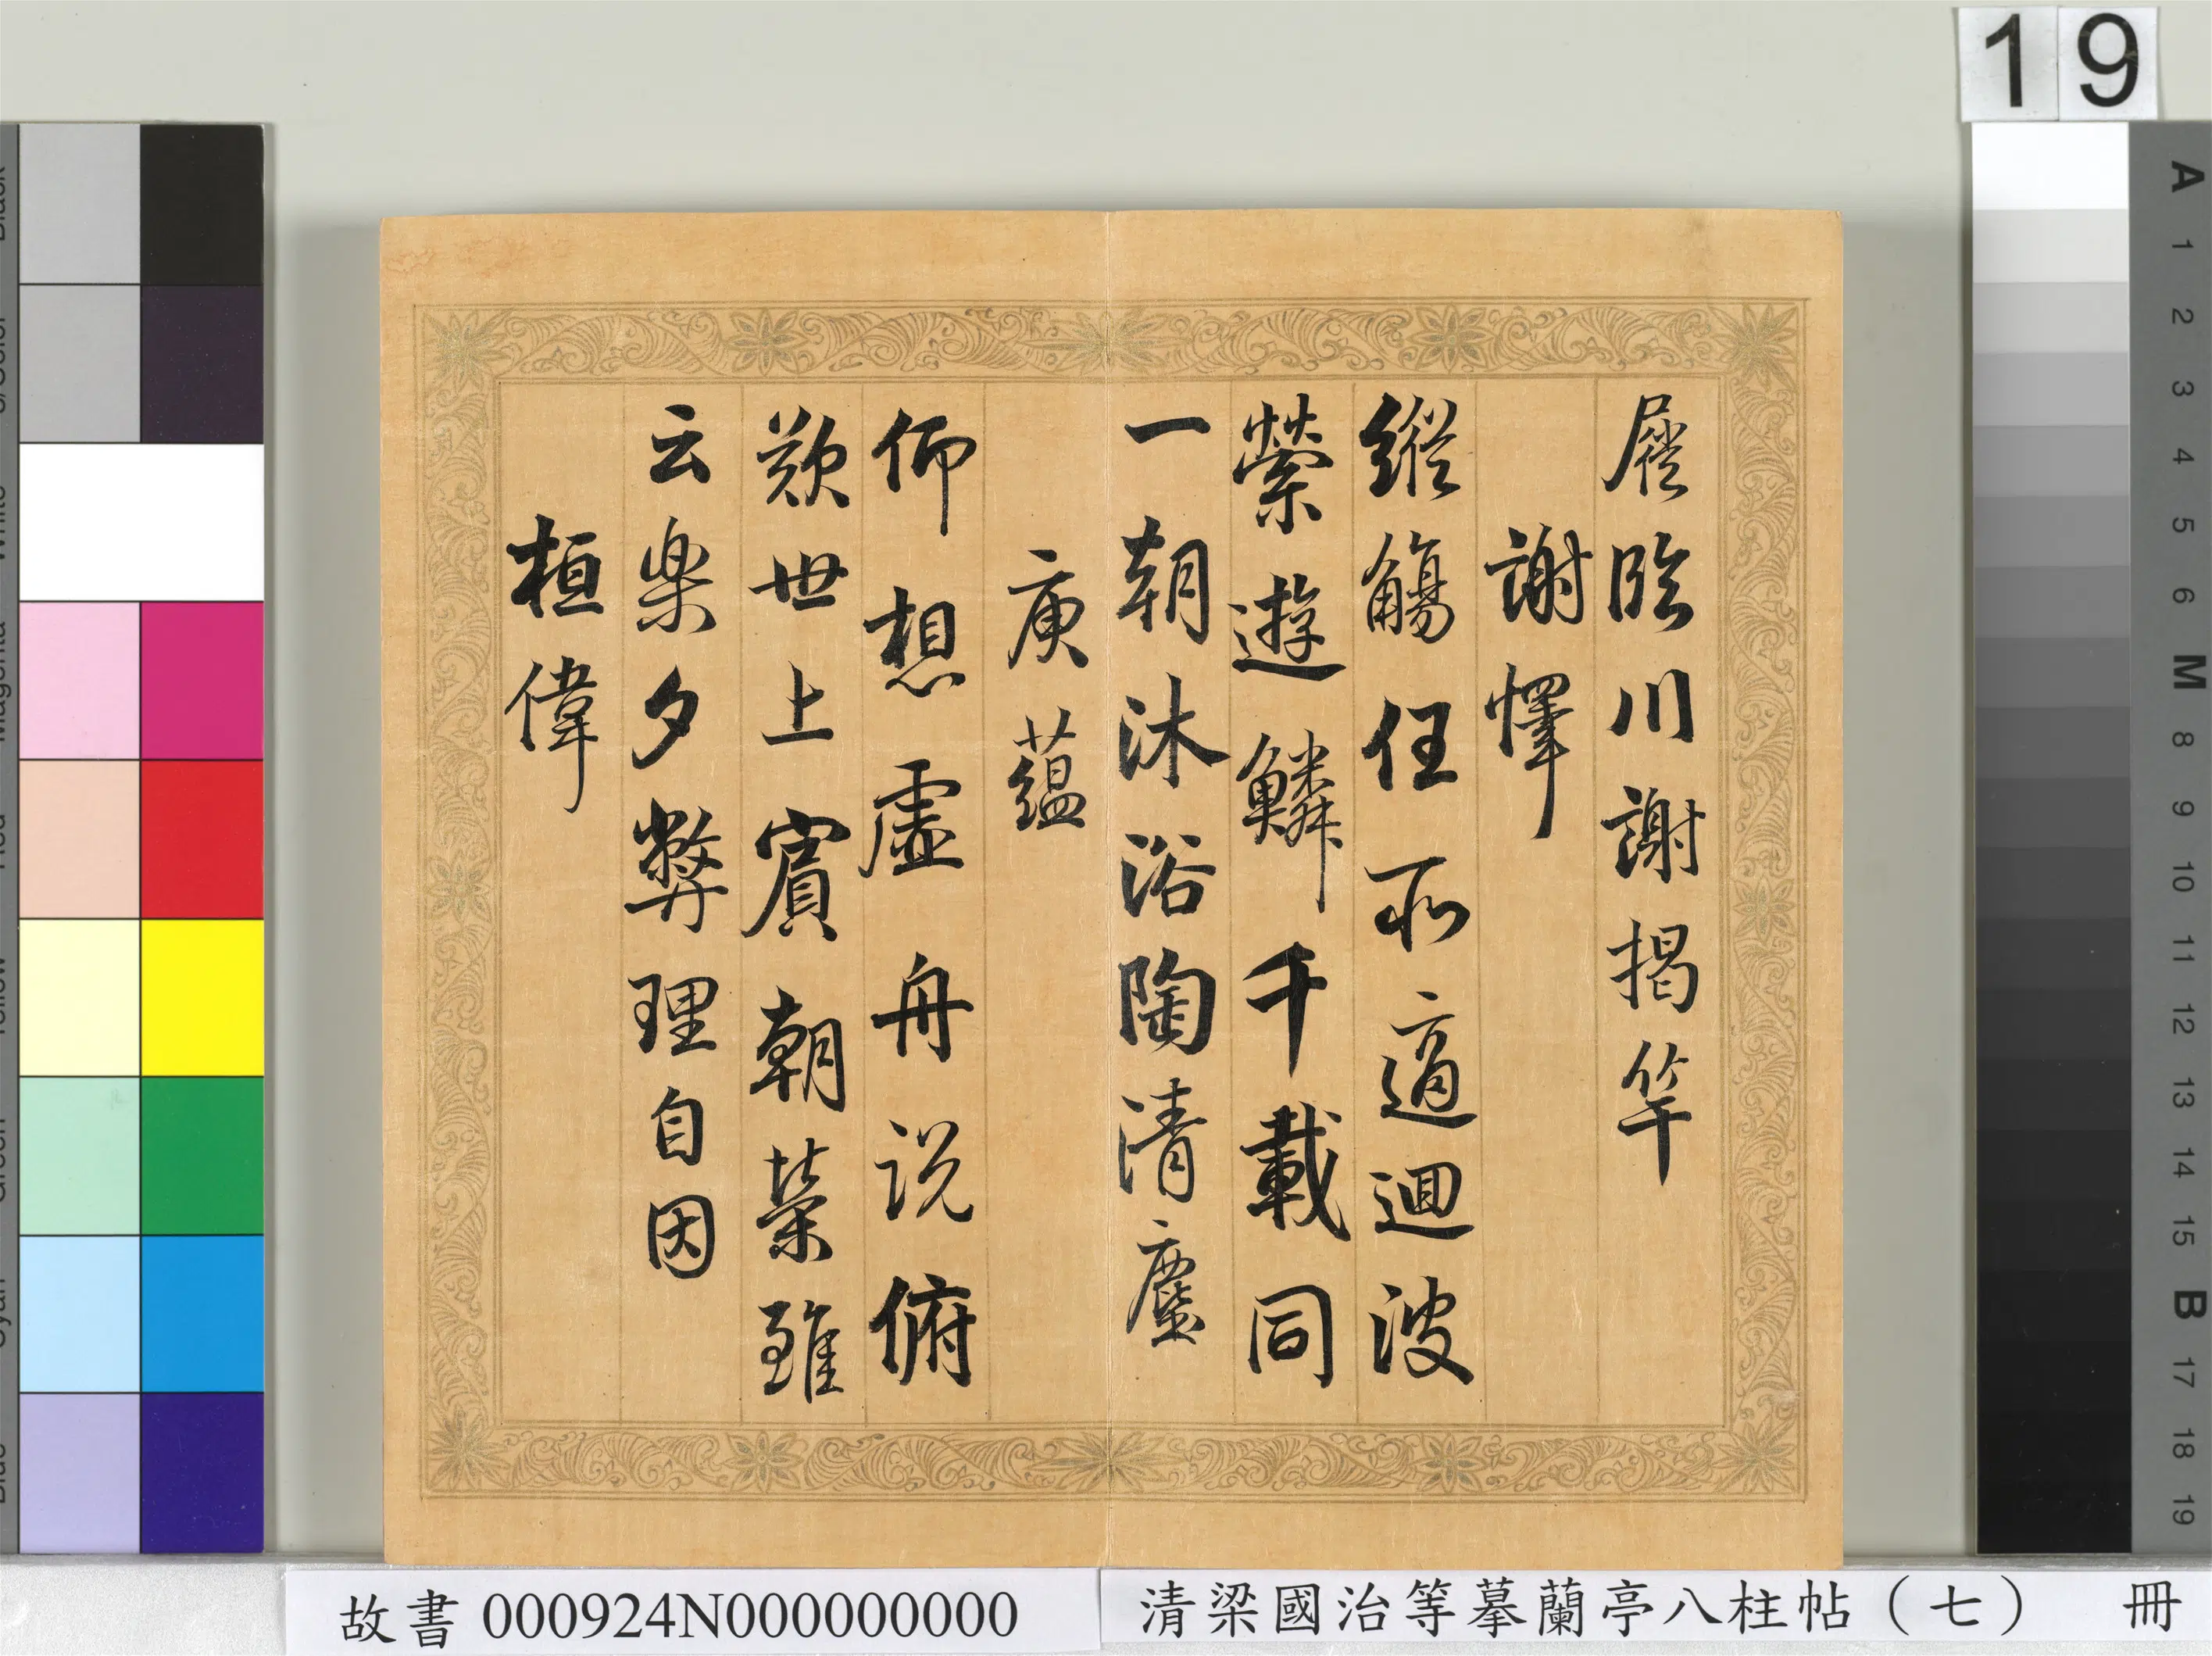 19
屐臨川謝揭竿
謝懌
縱觴任所適迴波
縈遊鱗千載同
一朝沐浴陶清塵
庾蘊
仰想虛舟說俯
歎世上賓朝榮雖
云樂夕弊理自因
桓偉
故書 000924N000000000
清梁國治等摹蘭亭八柱帖（七） 冊
A
1
2
3
4
5
6
M
8
9
10
11
12
13
14
15
B
17
18
19